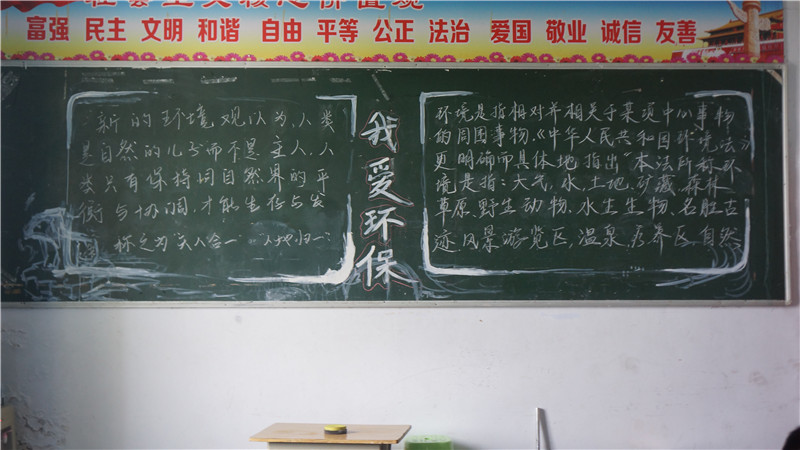 富强 民主 文明 和谐 自由 平等 公正 法治 爱国 敬业 诚信 友善
新的环境观认为,人类
是自然的儿子而不是主人,人
类只有保持同自然界的平
衡与协调,才能生存与发
称之为"天人合一
我爱环保
环境是指相对并相关于某项中心事物
的周围事物,《中华人民共和国环境法》
更明确而具体地指出"本法所称环
境是指:大气,水,土地,矿藏,森林
草原,野生动物、水生生物、名胜古
迹,风景游览区,温泉,疗养区,自然